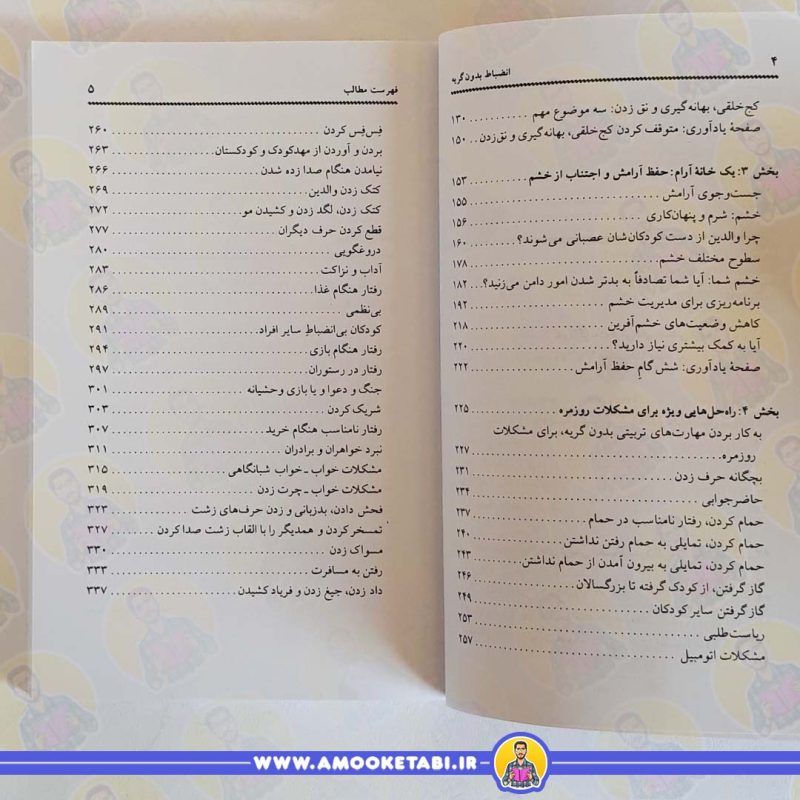 ۴ انضباط بدون گریه
کج‌خلقی، بهانه‌گیری و نق زدن: سه موضوع مهم ۱۳۰
صفحهٔ یادآوری: متوقف کردن کج‌خلقی، بهانه‌گیری و نق‌زدن ۱۵۰
بخش ۳: یک خانهٔ آرام: حفظ آرامش و اجتناب از خشم ۱۵۳
جست‌وجوی آرامش ۱۵۵
خشم: شرم و پنهان‌کاری ۱۵۶
چرا والدین از دست کودکان‌شان عصبانی می‌شوند؟ ۱۶۰
سطوح مختلف خشم ۱۷۸
خشم شما: آیا شما تصادفاً به بدتر شدن امور دامن می‌زنید؟ ۱۸۲
برنامه‌ریزی برای مدیریت خشم ۱۹۲
کاهش وضعیت‌های خشم‌آفرین ۲۱۸
آیا به کمک بیشتری نیاز دارید؟ ۲۲۰
صفحهٔ یادآوری: شش گامِ حفظ آرامش ۲۲۲
بخش ۴: راه‌حل‌هایی ویژه برای مشکلات روزمره ۲۲۵
به کار بردن مهارت‌های تربیتی بدون گریه، برای مشکلات
روزمره ۲۲۷
بچگانه حرف زدن ۲۳۱
حاضرجوابی ۲۳۴
حمام کردن، رفتار نامناسب در حمام ۲۳۷
حمام کردن، تمایلی به حمام رفتن نداشتن ۲۴۰
حمام کردن، تمایلی به بیرون آمدن از حمام نداشتن ۲۴۳
گاز گرفتن، از کودک گرفته تا بزرگسالان ۲۴۶
گاز گرفتن سایر کودکان ۲۴۹
ریاست‌طلبی ۲۵۳
مشکلات اتومبیل ۲۵۷
فهرست مطالب ۵
فِس‌فِس کردن ۲۶۰
بردن و آوردن از مهدکودک و کودکستان ۲۶۳
نیامدن هنگام صدا زده شدن ۲۶۶
کتک زدن والدین ۲۶۹
کتک زدن، لگد زدن و کشیدن مو ۲۷۲
قطع کردن حرف دیگران ۲۷۷
دروغگویی ۲۸۰
آداب و نزاکت ۲۸۳
رفتار هنگام غذا ۲۸۶
بی‌نظمی ۲۸۹
کودکان بی‌انضباطِ سایر افراد ۲۹۱
رفتار هنگام بازی ۲۹۴
رفتار در رستوران ۲۹۷
جنگ و دعوا و یا بازی وحشیانه ۳۰۱
شریک کردن ۳۰۳
رفتار نامناسب هنگام خرید ۳۰۷
نبرد خواهران و برادران ۳۱۱
مشکلات خواب ـ خواب شبانگاهی ۳۱۵
مشکلات خواب ـ چرت زدن ۳۱۹
فحش دادن، بدزبانی و زدن حرف‌های زشت ۳۲۳
تمسخر کردن و همدیگر را با القاب زشت صدا کردن ۳۲۷
مسواک زدن ۳۳۰
رفتن به مسافرت ۳۳۳
داد زدن، جیغ زدن و فریاد کشیدن ۳۳۷
WWW.AMOOKETABI.IR